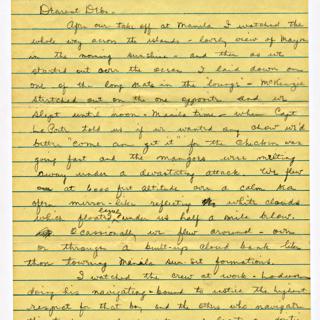 Dearest Debs -
After our take off at Manila I watched the
whole way across the islands - lovely view of Mayon
in the morning sunshine - and then as we
started out over the ocean I laid down on
one of the long seats in the "lounge" - McKenzie
stretched out on the one opposite and we
slept until noon - Manila time - when Capt
told us if we wanted any chow we'd
better "come an get it" for the chicken was
going fast and the mangoes were melting
away under a devastating attack. We flew
at 6000 feet altitude over a calm sea
often mirror-like reflecting white clouds
which floated lazily under us half a mile below.
Occasionally we flew around - over
or through a built-up cloud bank like
those towering Manila sun-set formations.
I watched the crew at work -
doing his navigating - bound to notice the highest
respect for that boy and the others who navigate